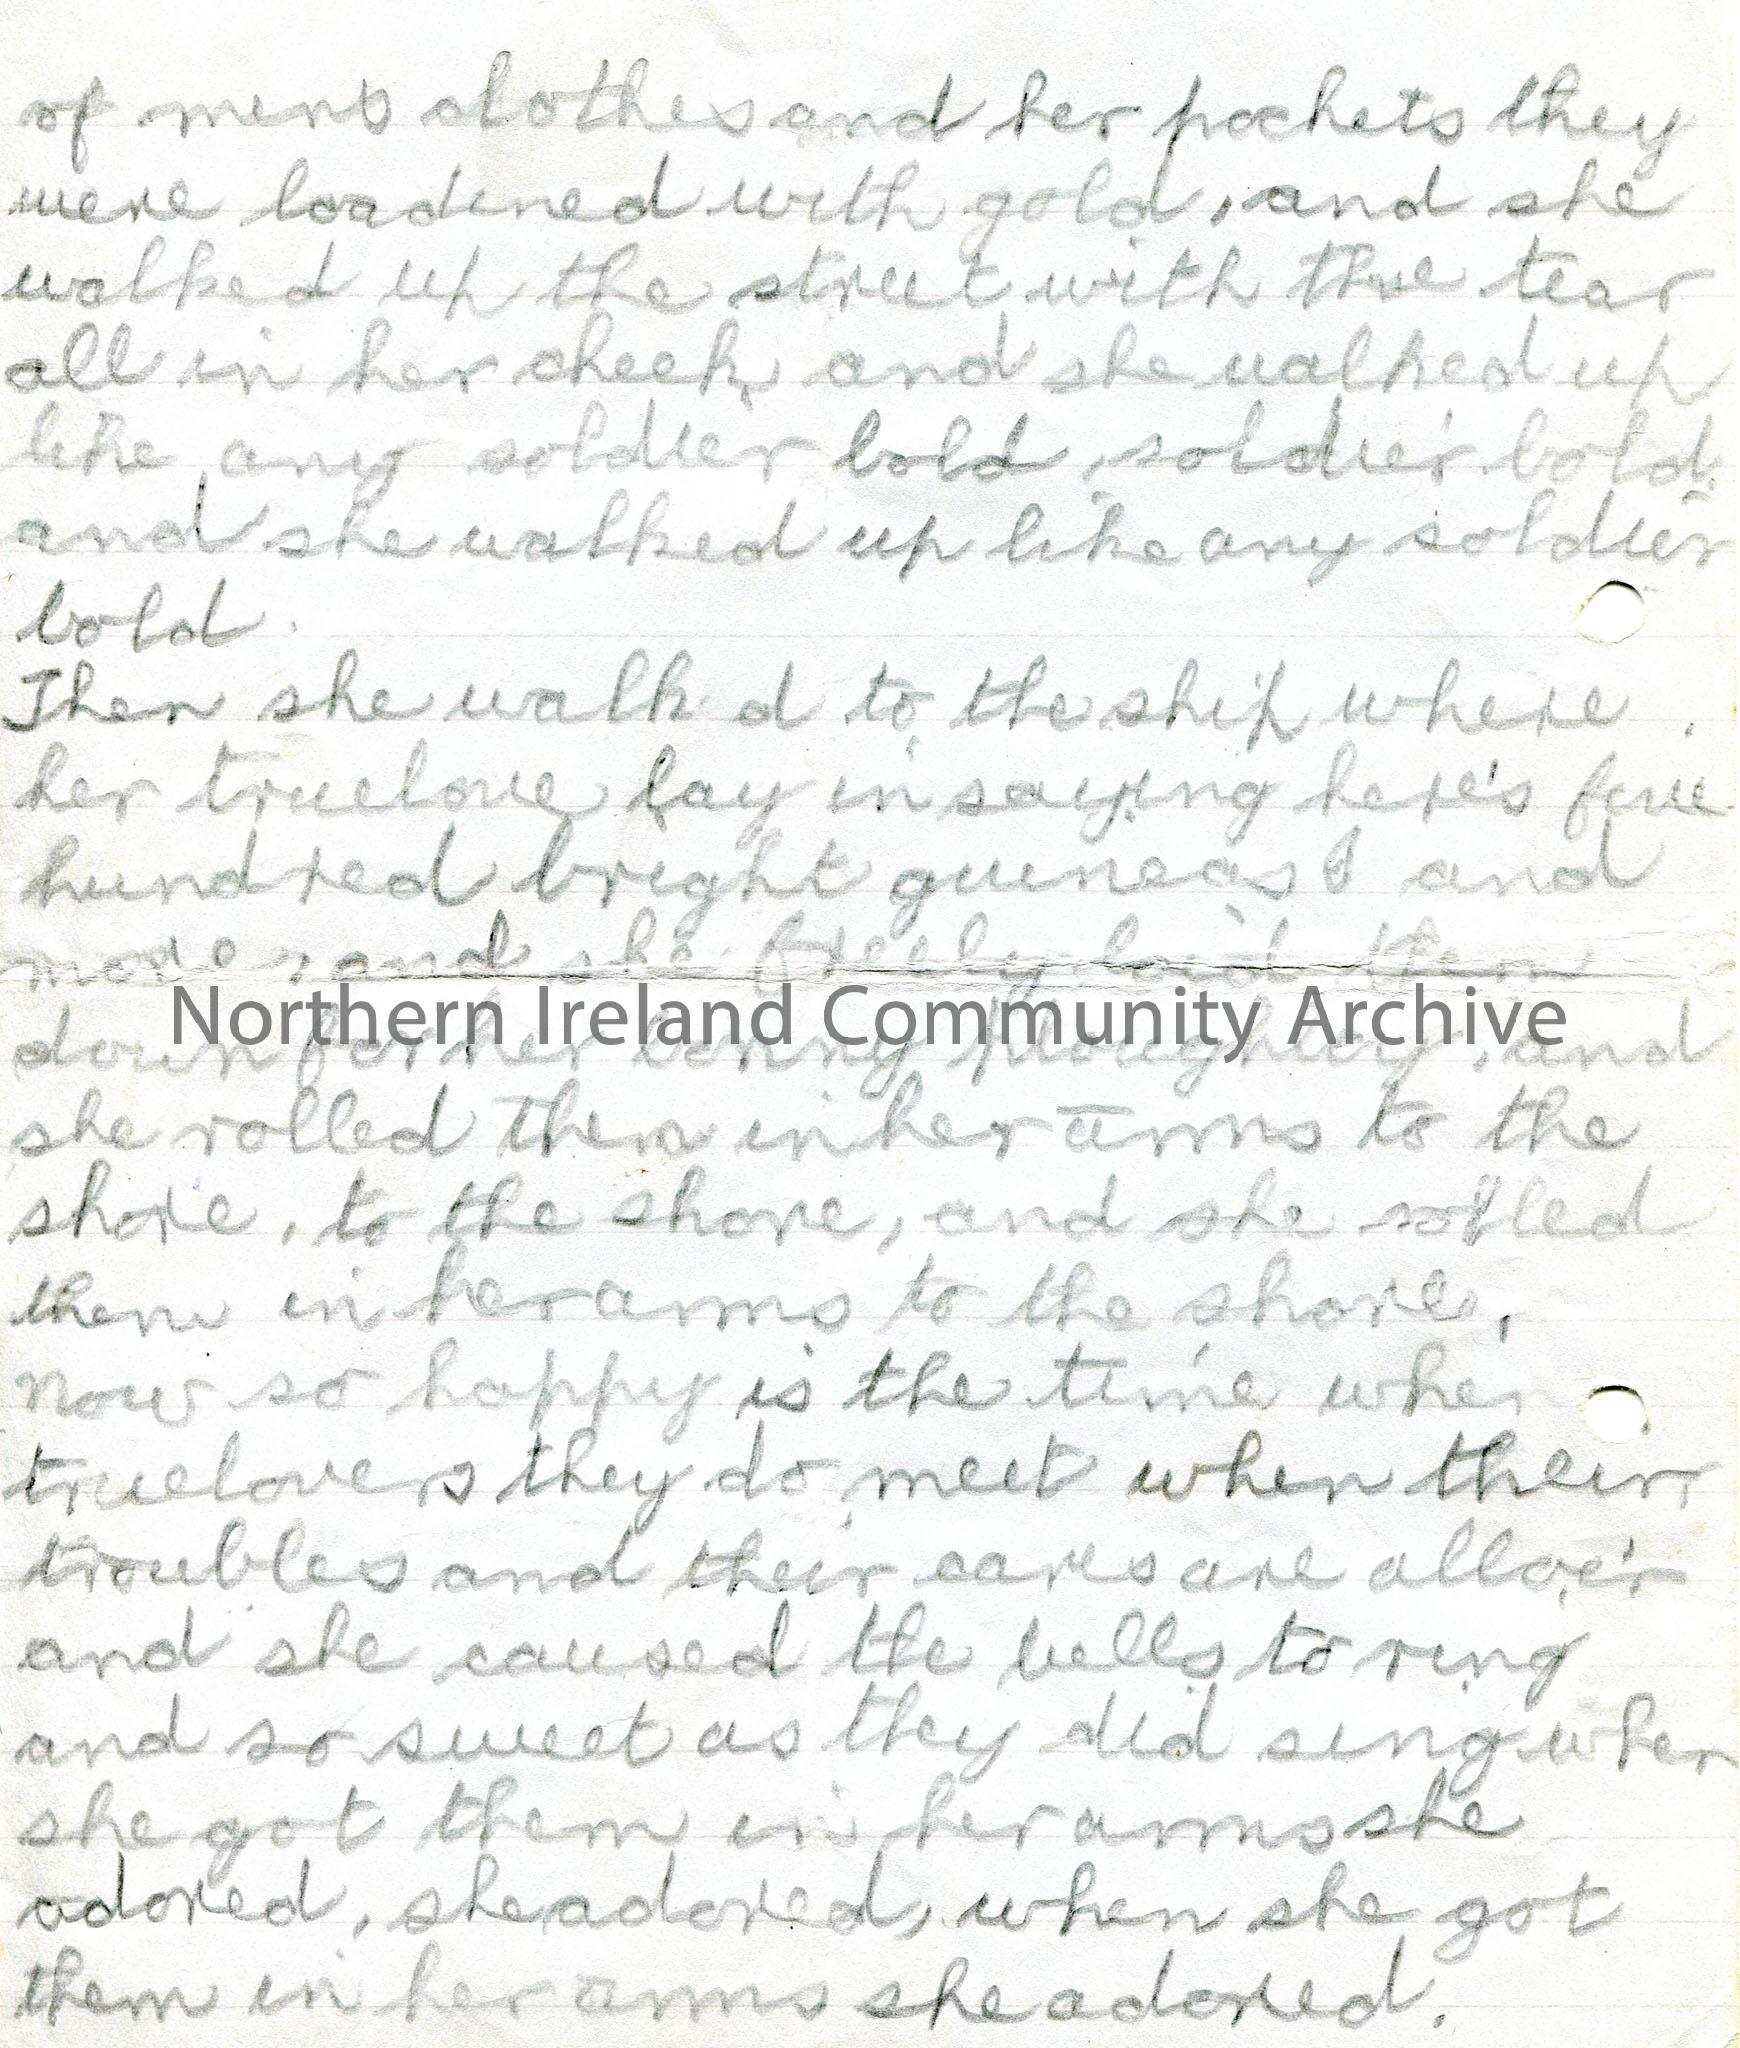 of men's clothes and her pockets they
were loadened with gold, and she
walked up the street with the tear
all in her cheek, and she walked up
like any soldier bold, soldier bold
and she walked up like any soldier
bold.
Then she walked to the ship where
her truelove lay in saying here's five
hundred bright guineas I and
more, and she freely laid them
down for her loving ploughboy, and
she rolled them in her arms to the
shore, to the shore, and she rolled
them in her arms to the shore,
Now so happy is the time when
truelovers they do meet when their
troubles and their cares are all o'er
and she caused the bells to ring
and so sweet as they did sing when
she got them in her arms she
adored, she adored, when she got
them in her arms she adored.
Northern Ireland Community Archive